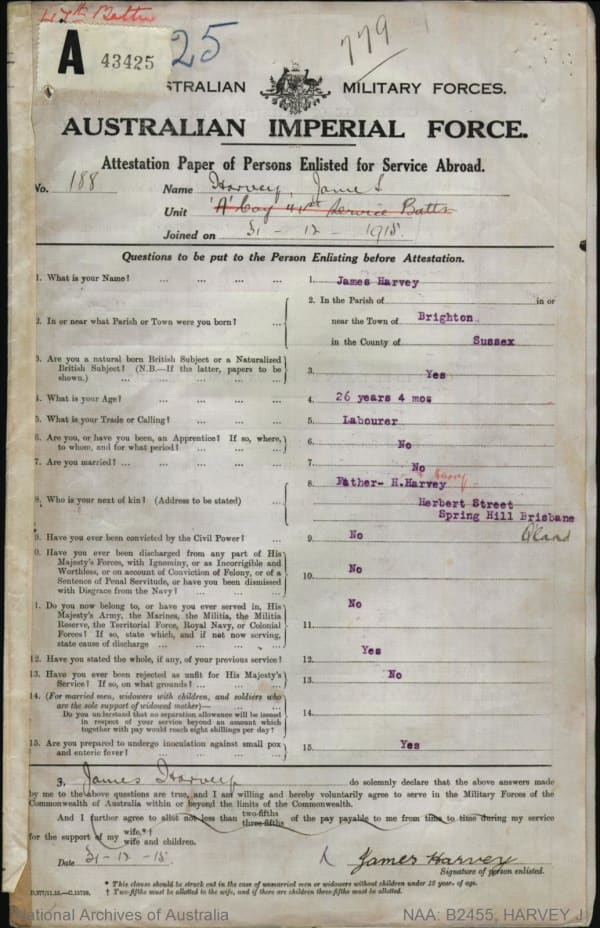 47th Battn
A 43425
25
779
STRALIAN MILITARY FORCES.
AUSTRALIAN IMPERIAL FORCE.
Attestation Paper of Persons Enlisted for Service Abroad.
No. 188 Name Harvey, James
Unit 'A' Coy 41st Service Battn
Joined on 31 - 12 - 1915.
Questions to be put to the Person Enlisting before Attestation.
1. What is your Name? ... ... ... ... 1. James Harvey
2. In or near what Parish or Town were you born? ... 2. In the Parish of in or
near the Town of Brighton
in the County of Sussex
3. Are you a natural born British Subject or a Naturalized
British Subject? (N.B.—If the latter, papers to be
shown.) ... ... ... ... 3. Yes
4. What is your Age? ... ... ... ... 4. 26 years 4 mos
5. What is your Trade or Calling? ... ... ... 5. Labourer
6. Are you, or have you been, an Apprentice? If so, where,
to whom, and for what period? ... ... ... 6. No
7. Are you married? ... ... ... ... 7. No
8. Who is your next of kin? (Address to be stated) ... 8. Father- H.Harvey
Herbert Street
Spring Hill Brisbane
Qland
9. Have you ever been convicted by the Civil Power? ... 9. No
0. Have you ever been discharged from any part of His
Majesty's Forces, with Ignominy, or as Incorrigible and
Worthless, or on account of Conviction of Felony, or of a
Sentence of Penal Servitude, or have you been dismissed
with Disgrace from the Navy? ... ... ... 10. No
1. Do you now belong to, or have you ever served in, His
Majesty's Army, the Marines, the Militia, the Militia
Reserve, the Territorial Force, Royal Navy, or Colonial
Forces? If so, state which, and if not now serving,
state cause of discharge ... ... ... ... 11. No
12. Have you stated the whole, if any, of your previous service? 12. Yes
13. Have you ever been rejected as unfit for His Majesty's
Service? If so, on what grounds? ... ... ... 13. No
14. (For married men, widowers with children, and soldiers who
are the sole support of widowed mother)— ... ...
Do you understand that no separation allowance will be issued
in respect of your service beyond an amount which
together with pay would reach eight shillings per day? 14.
15. Are you prepared to undergo inoculation against small pox
and enteric fever? ... ... ... ... 15. Yes
I, James Harvey do solemnly declare that the above answers made
by me to the above questions are true, and I am willing and hereby voluntarily agree to serve in the Military Forces of the
Commonwealth of Australia within or beyond the limits of the Commonwealth.
And I further agree to allot not less than two-fifths three-fifths of the pay payable to me from time to time during my service
for the support of my wife.*† wife and children.
Date 31 - 12 - 15. James Harvey
Signature of person enlisted.
* This clause should be struck out in the case of unmarried men or widowers without children under 18 year. of age.
† Two-fifths must be allotted to the wife, and if there are children three-fifths must be allotted.
National Archives of Australia NAA: B2455, HARVEY J